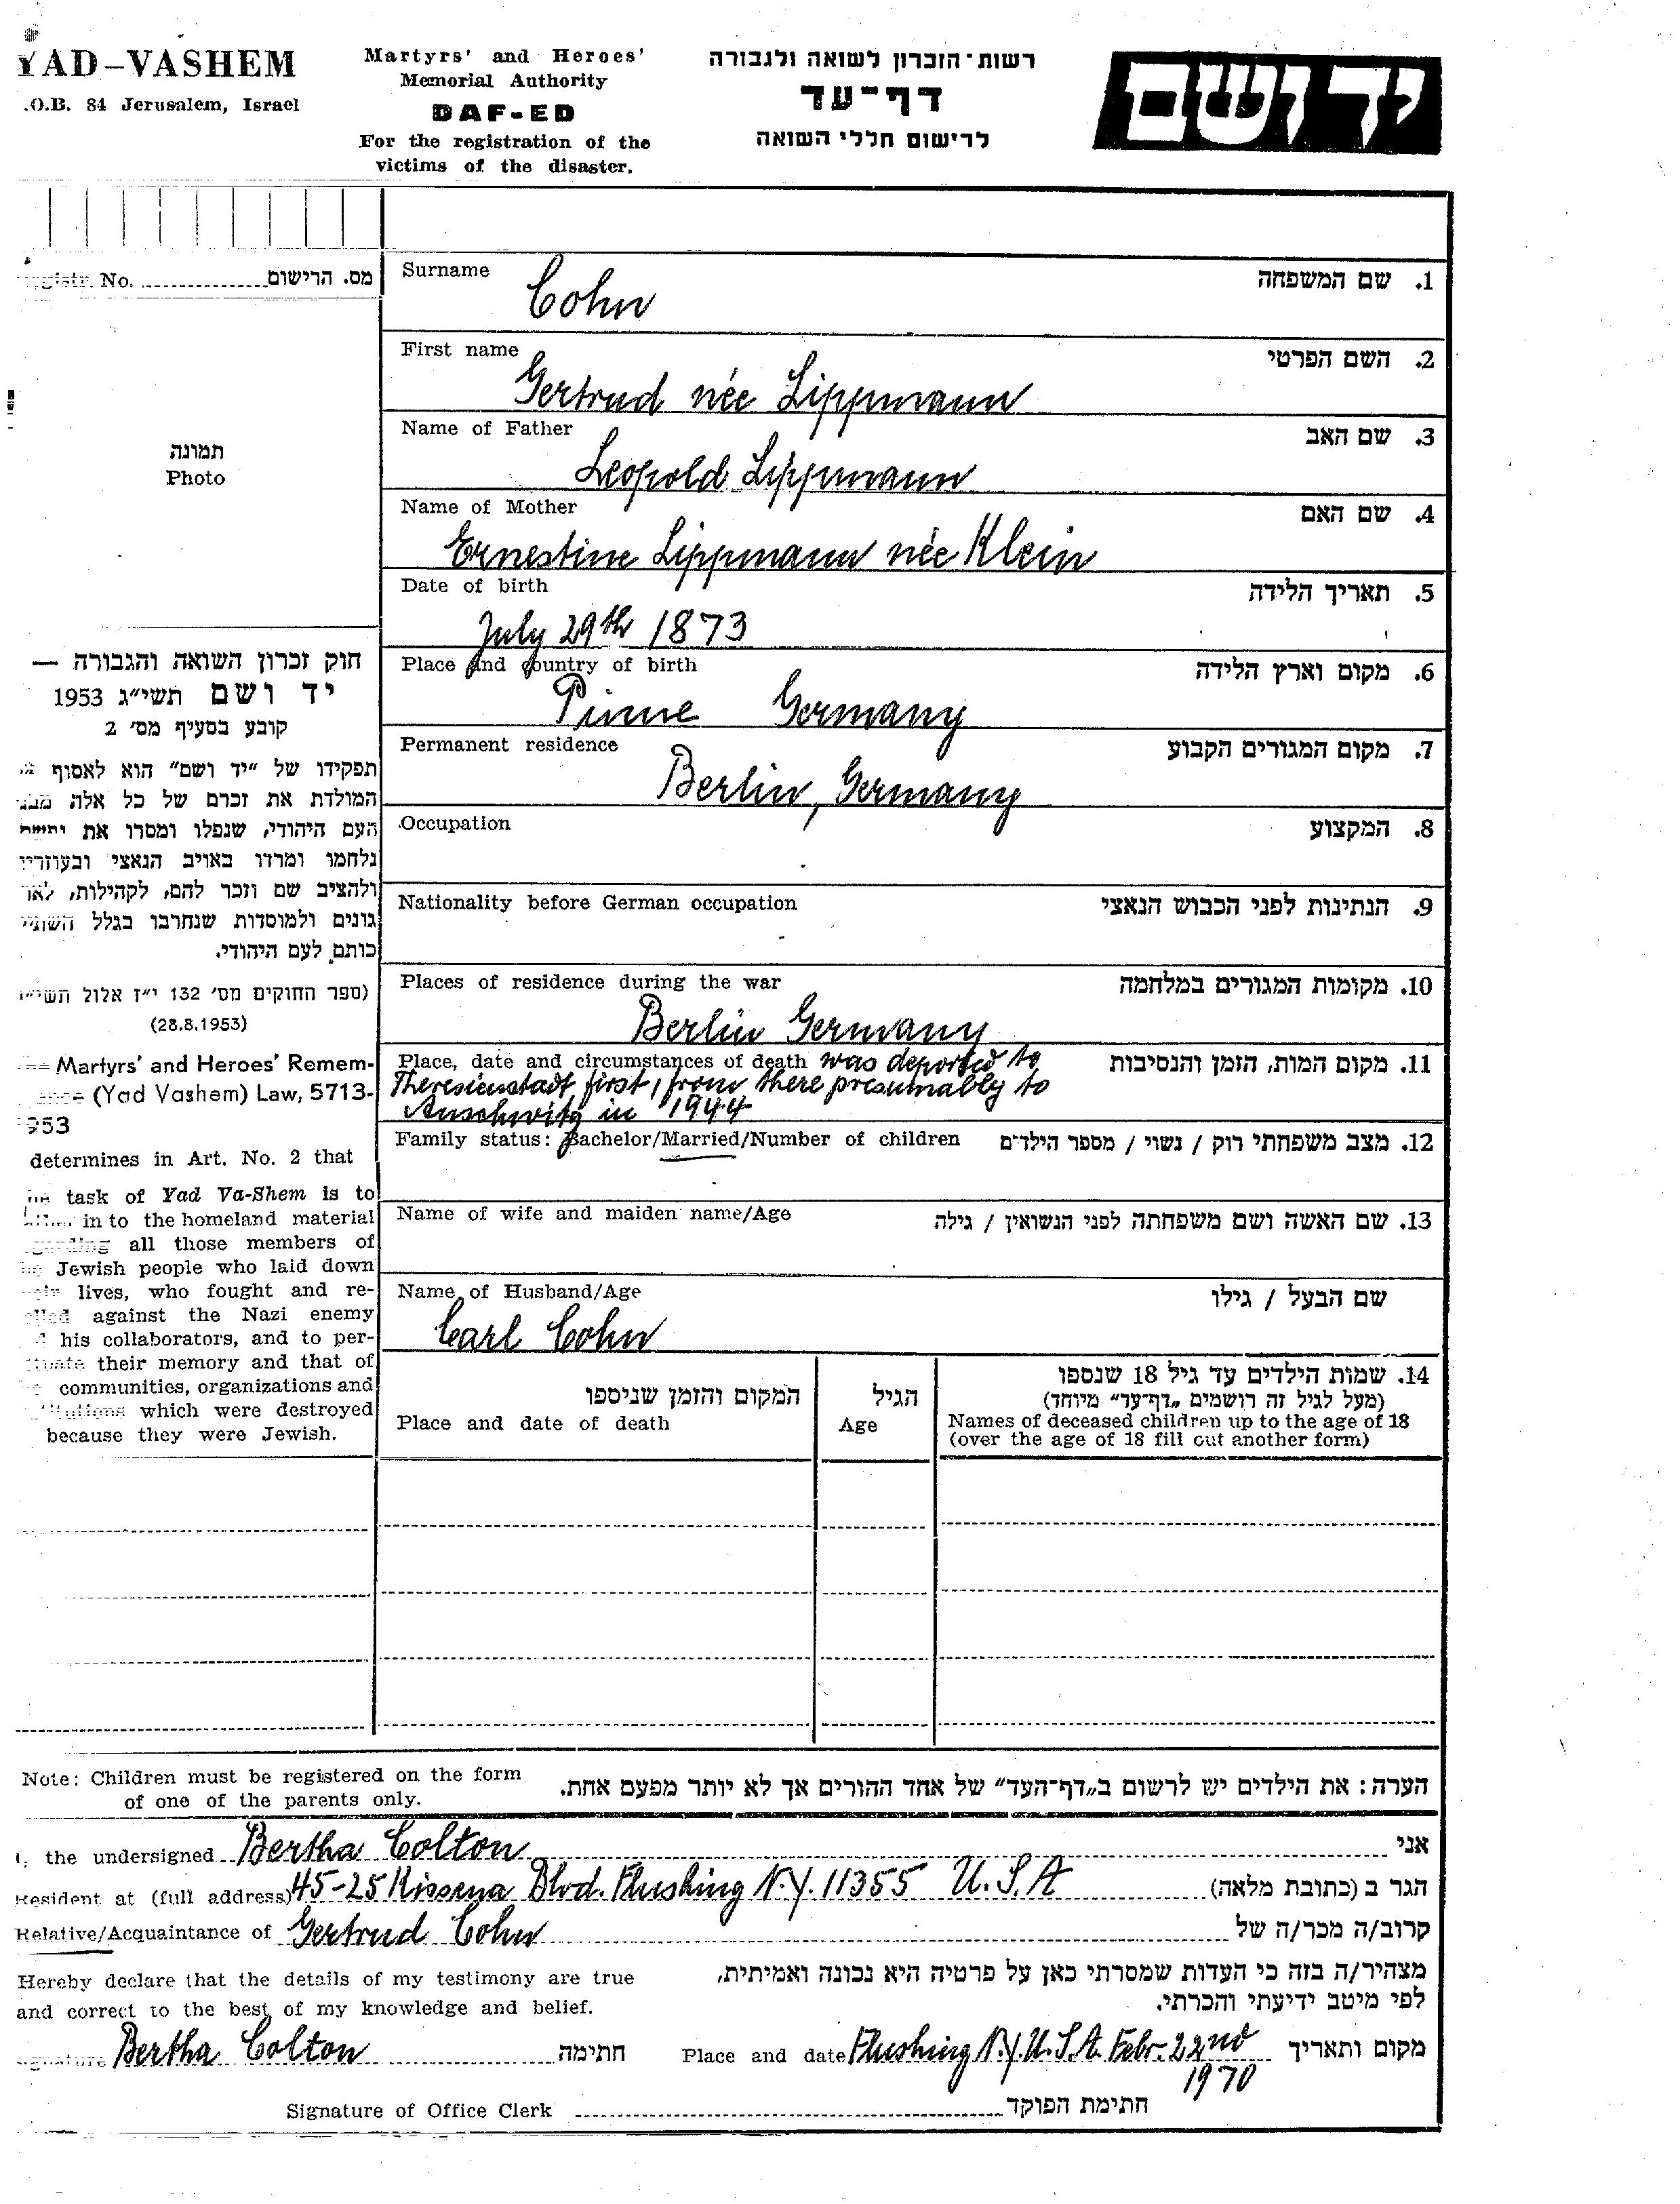 YAD-VASHEM
.O.B. 84 Jerusalem, Israel
Martyrs' and Heroes'
Memorial Authority
DAF-ED
For the registration of the
victims of the disaster.
רשות-הזכרון לשואה ולגבורה
דף-עד
לרישום חללי השואה
יד ושם
No. מס. הרישום
תמונה
Photo
חוק זכרון השואה והגבורה —
יד ושם תשי״ג 1953
קובע בסעיף מס׳ 2
תפקידו של ״יד ושם״ הוא לאסוף
המולדת את זכרם של כל אלה
העם היהודי, שנפלו ומסרו את
נלחמו ומרדו באויב הנאצי
ולהציב שם וזכר להם, לקהילות,
גונים ולמוסדות שנחרבו בגלל
כותם לעם היהודי.
(ספר החוקים מס׳ 132 י״ז אלול
(28.8.1953)
Martyrs' and Heroes' Remem-
(Yad Vashem) Law, 5713-
953
determines in Art. No. 2 that
task of Yad Va-Shem is to
in to the homeland material
all those members of
Jewish people who laid down
lives, who fought and re-
against the Nazi enemy
his collaborators, and to per-
their memory and that of
communities, organizations and
which were destroyed
because they were Jewish.
Surname 1. שם המשפחה
Cohn
First name 2. השם הפרטי
Gertrud née Lippmann
Name of Father 3. שם האב
Leopold Lippmann
Name of Mother 4. שם האם
Ernestine Lippmann née Klein
Date of birth 5. תאריך הלידה
July 29th 1873
Place and country of birth 6. מקום וארץ הלידה
Pinne Germany
Permanent residence 7. מקום המגורים הקבוע
Berlin, Germany
Occupation 8. המקצוע
Nationality before German occupation 9. הנתינות לפני הכבוש הנאצי
Places of residence during the war 10. מקומות המגורים במלחמה
Berlin Germany
Place, date and circumstances of death was deported to 11. מקום המות, הזמן והנסיבות
Theresienstadt first, from there presumably to
Auschwitz in 1944
Family status: Bachelor/Married/Number of children 12. מצב משפחתי רוק / נשוי / מספר הילדים
Name of wife and maiden name/Age 13. שם האשה ושם משפחתה לפני הנשואין / גילה
Name of Husband/Age שם הבעל / גילו
Carl Cohn
14. שמות הילדים עד גיל 18 שנספו
(מעל לגיל זה רושמים „דף-עד״ מיוחד)
Names of deceased children up to the age of 18
(over the age of 18 fill out another form)
הגיל
Age
המקום והזמן שניספו
Place and date of death
Note: Children must be registered on the form
of one of the parents only.
הערה: את הילדים יש לרשום ב„דף-העד״ של אחד ההורים אך לא יותר מפעם אחת.
the undersigned Bertha Colton אני
Resident at (full address) 45-25 Kissena Blvd. Flushing N.Y. 11355 U.S.A הגר ב (כתובת מלאה)
Relative/Acquaintance of Gertrud Cohn קרוב/ה מכר/ה של
Hereby declare that the details of my testimony are true
and correct to the best of my knowledge and belief.
מצהיר/ה בזה כי העדות שמסרתי כאן על פרטיה היא נכונה ואמיתית,
לפי מיטב ידיעתי והכרתי.
Signature Bertha Colton חתימה Place and date Flushing N.Y. U.S.A. Febr. 22nd מקום ותאריך
1970
Signature of Office Clerk חתימת הפוקד